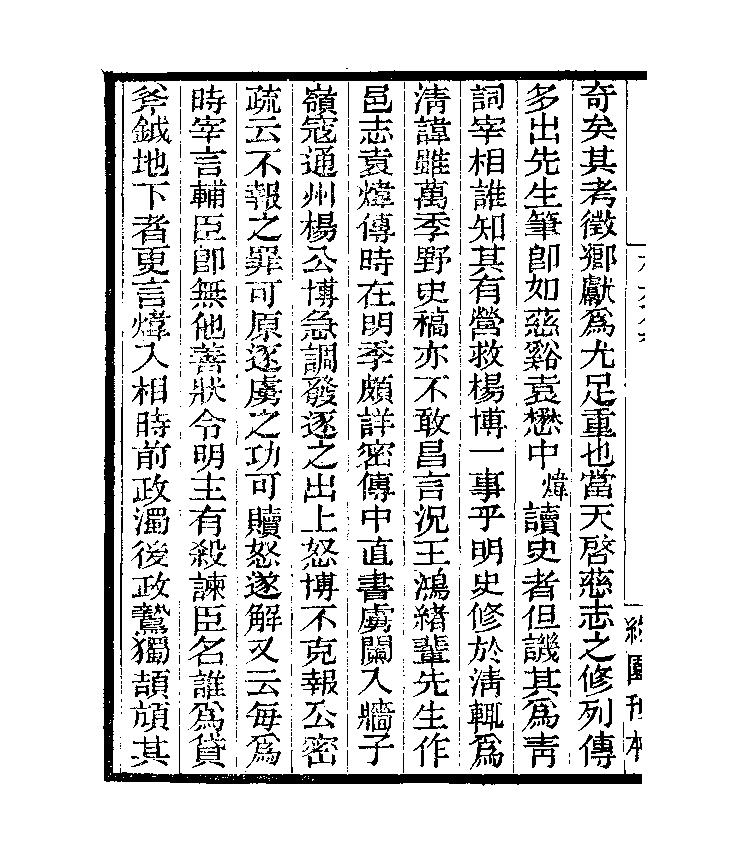 奇矣其考徵鄉獻爲尤足重也當天啓慈志之修列傳
多出先生筆卽如慈谿袁懋中煒讀史者但譏其爲靑
詞宰相誰知其有營救楊博一事乎明史修於淸輒爲
淸諱雖萬季野史稿亦不敢昌言況王鴻緖輩先生作
邑志袁煒傳時在明季頗詳密傳中直書虜闌入牆子
嶺寇通州楊公博急調發逐之出上怒博不克報公密
疏云不報之罪可原逐虜之功可贖怒遂解又云每爲
時宰言輔臣卽無他善狀令明主有殺諫臣名誰爲貸
斧鉞地下者更言煒入相時前政濁後政鷙獨頡頏其
園刊本